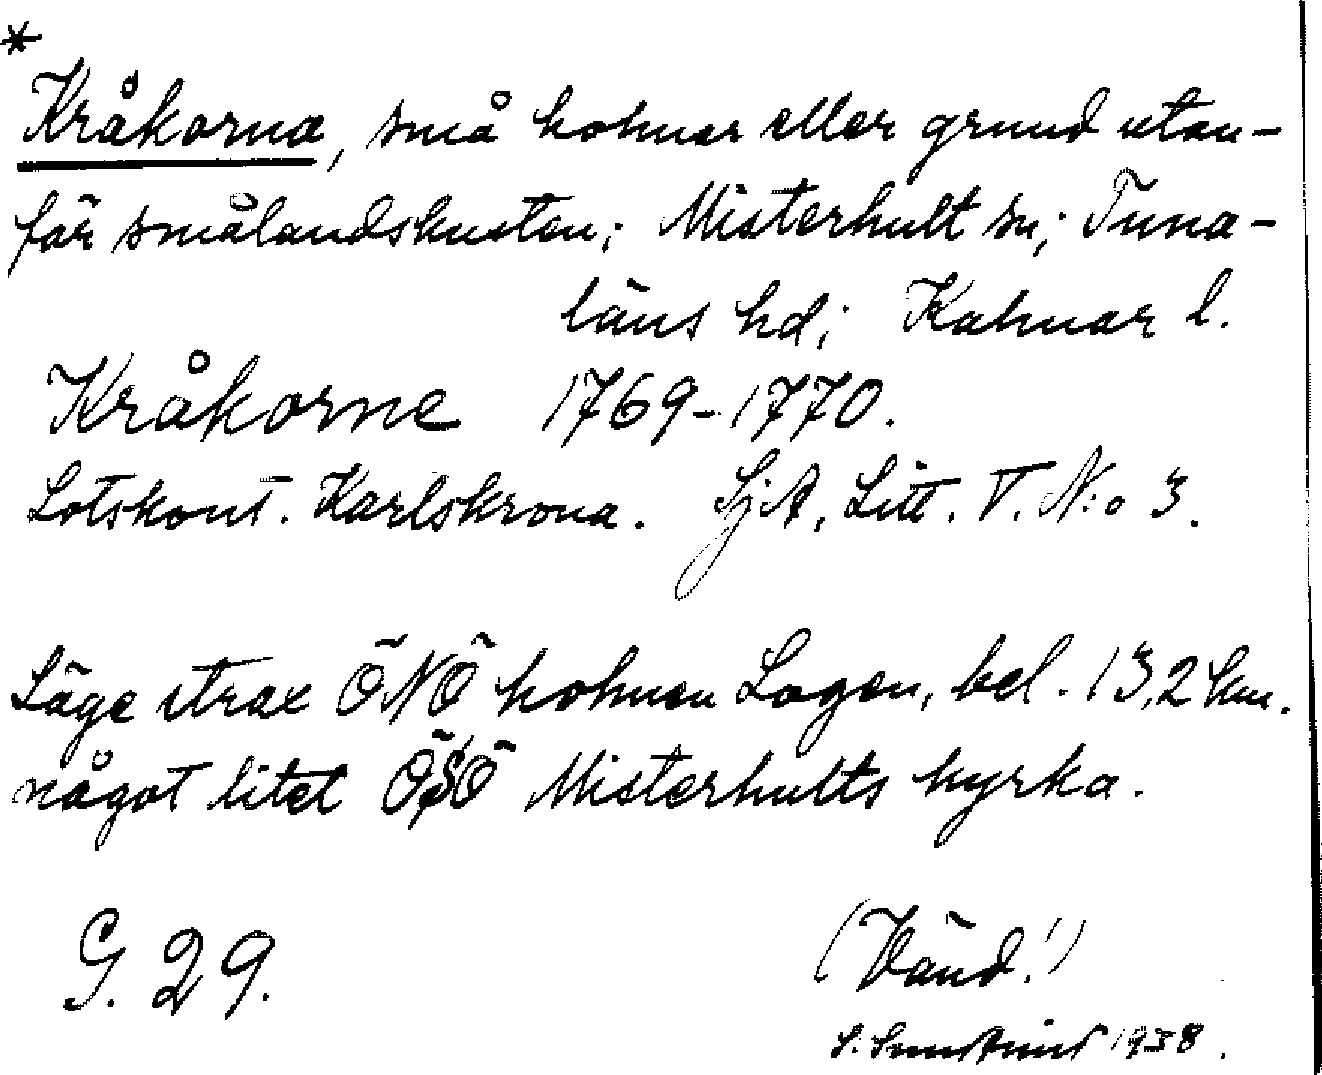 *
Kråkorna, små holmar eller grund utan-
för smålandskusten; Misterhult sn; Tuna-
läns hd; Kalmar l.
Kråkorne 1769-1770.
Lotskont. Karlskrona. SjA, Litt. V. N:o 3.
Läge strax ÖNÖ holmen Lagen, bel. 13,2 km.
något litet ÖSÖ Misterhults kyrka.
G. 29.
(Vänd!)
1938.